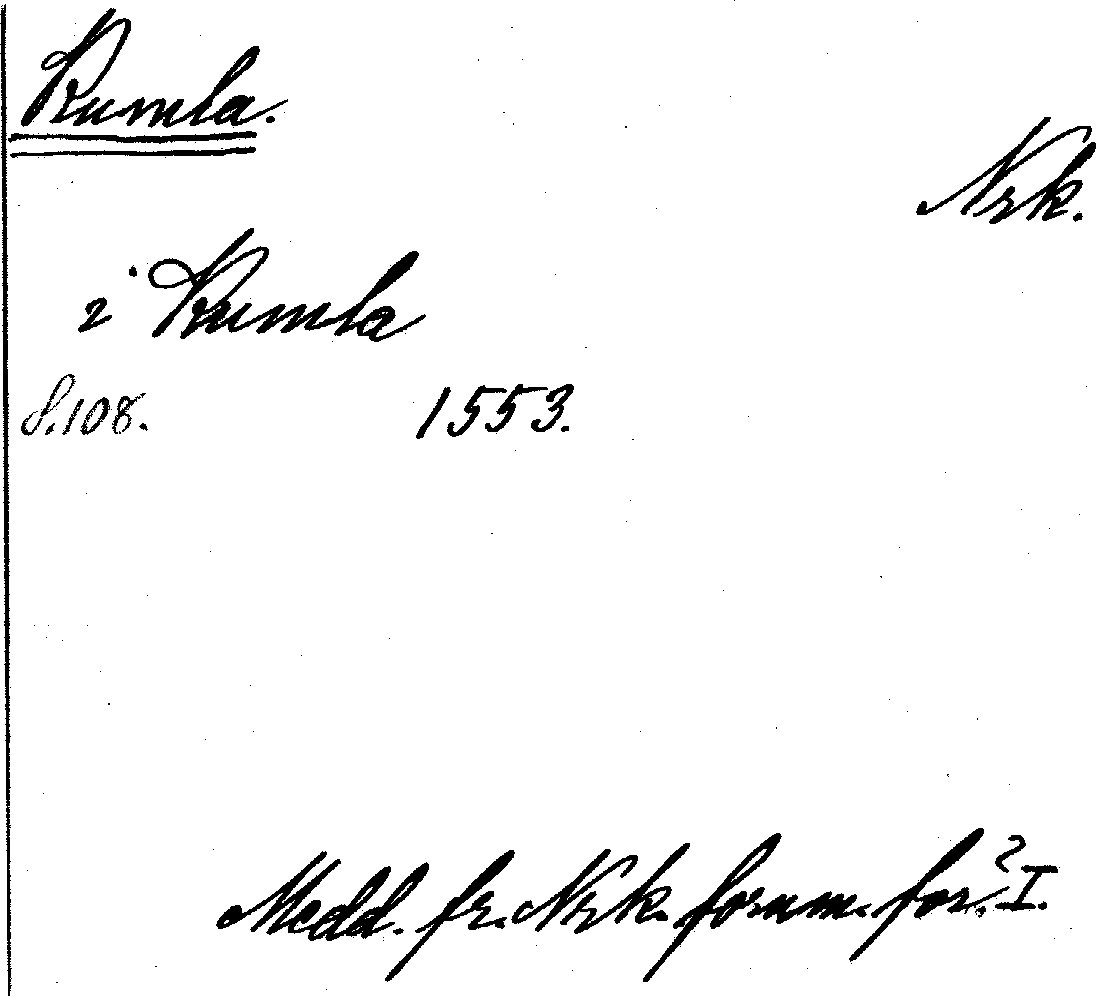 Kumla.
Nrk.
i Kumla
S. 108. 1553.
Medd. fr. Nrk. fornm. för. I.